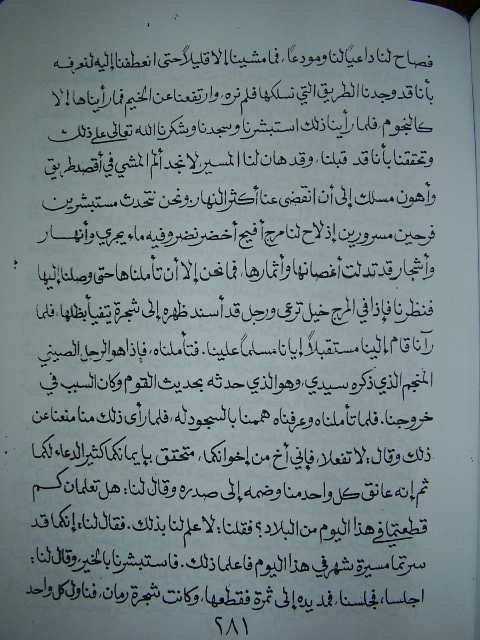 فصاح لنا داعياً لنا ومودعاً، فما مشينا إلا قليلاً حتى انعطفنا إليه لنعرفه
بأنا قد وجدنا الطريق التي نسلكها فلم نره، وارتفعنا عن الخيم فما رأيناها إلا
كالنجوم، فلما رأينا ذلك استبشرنا وسجدنا وشكرنا الله تعالى على ذلك
وتحققنا بأنا قد قبلنا، وقد هان لنا المسير لا نجد ألم المشي في أقصد طريق
وأهون مسلك إلى أن انقضى عنا أكثر النهار، ونحن نتحدث مستبشرين
فرحين مسرورين إذ لاح لنا مرج أفيح أخضر نضر وفيه ماء يجري وأنهار
وأشجار قد تدلت أغصانها وأثمارها، فما نحن إلا أن تأملناها حتى وصلنا إليها
فنظرنا فإذا في المرج خيل ترعى ورجل قد أسند ظهره إلى شجرة يتفيأ بظلها، فلما
رآنا قام إلينا مستقبلاً إيانا مسلماً علينا. فتأملناه، فإذا هو الرجل الصيني
المنجم الذي ذكره سيدي، وهو الذي حدثه بحديث القوم وكان السبب في
خروجنا. فلما تأملناه وعرفناه هممنا بالسجود له، فلما رأى ذلك منا منعنا عن
ذلك وقال: لا تفعلا، فإني أخ من إخوانكما، متحقق بإيمانكما كثير الدعاء لكما
ثم إنه عانق كل واحد منا وضمه إلى صدره وقال لنا: هل تعلمان كم
قطعتما في هذا اليوم من البلاد؟ فقلنا: لا علم لنا بذلك. فقال لنا: إنكما قد
سرتما مسيرة شهر في هذا اليوم فاعلما ذلك. فاستبشرنا بالخير، وقال لنا:
اجلسا، فجلسنا، فمد يده إلى ثمرة فقطعها، وكانت شجرة رمان، فناول كل واحد
٢٨١